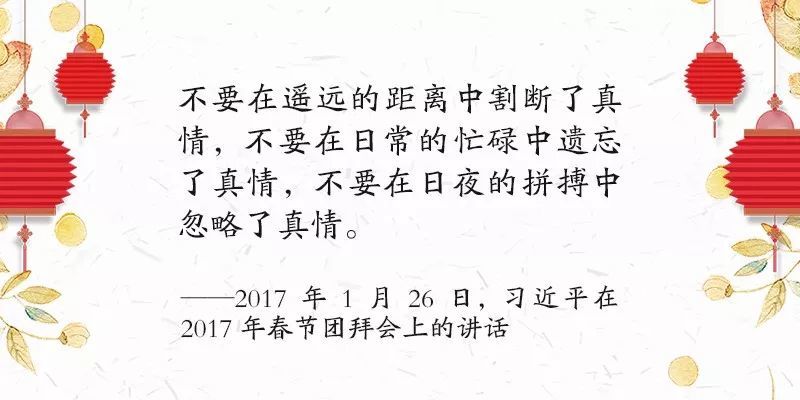 不要在遥远的距离中割断了真
情，不要在日常的忙碌中遗忘
了真情，不要在日夜的拼搏中
忽略了真情。
——2017 年 1 月 26 日，习近平在
2017 年春节团拜会上的讲话